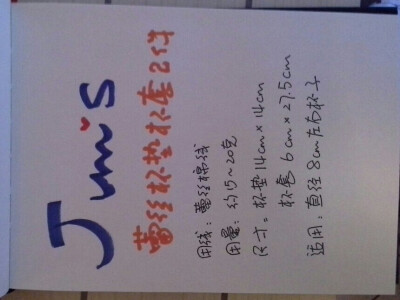 Juni's
蕾丝杯垫杯套2件
用线：蕾丝棉线
用量：约15~20克
尺寸：杯垫 14cm×14cm
杯套 6cm×27.5cm
适用：直径8cm左右杯子